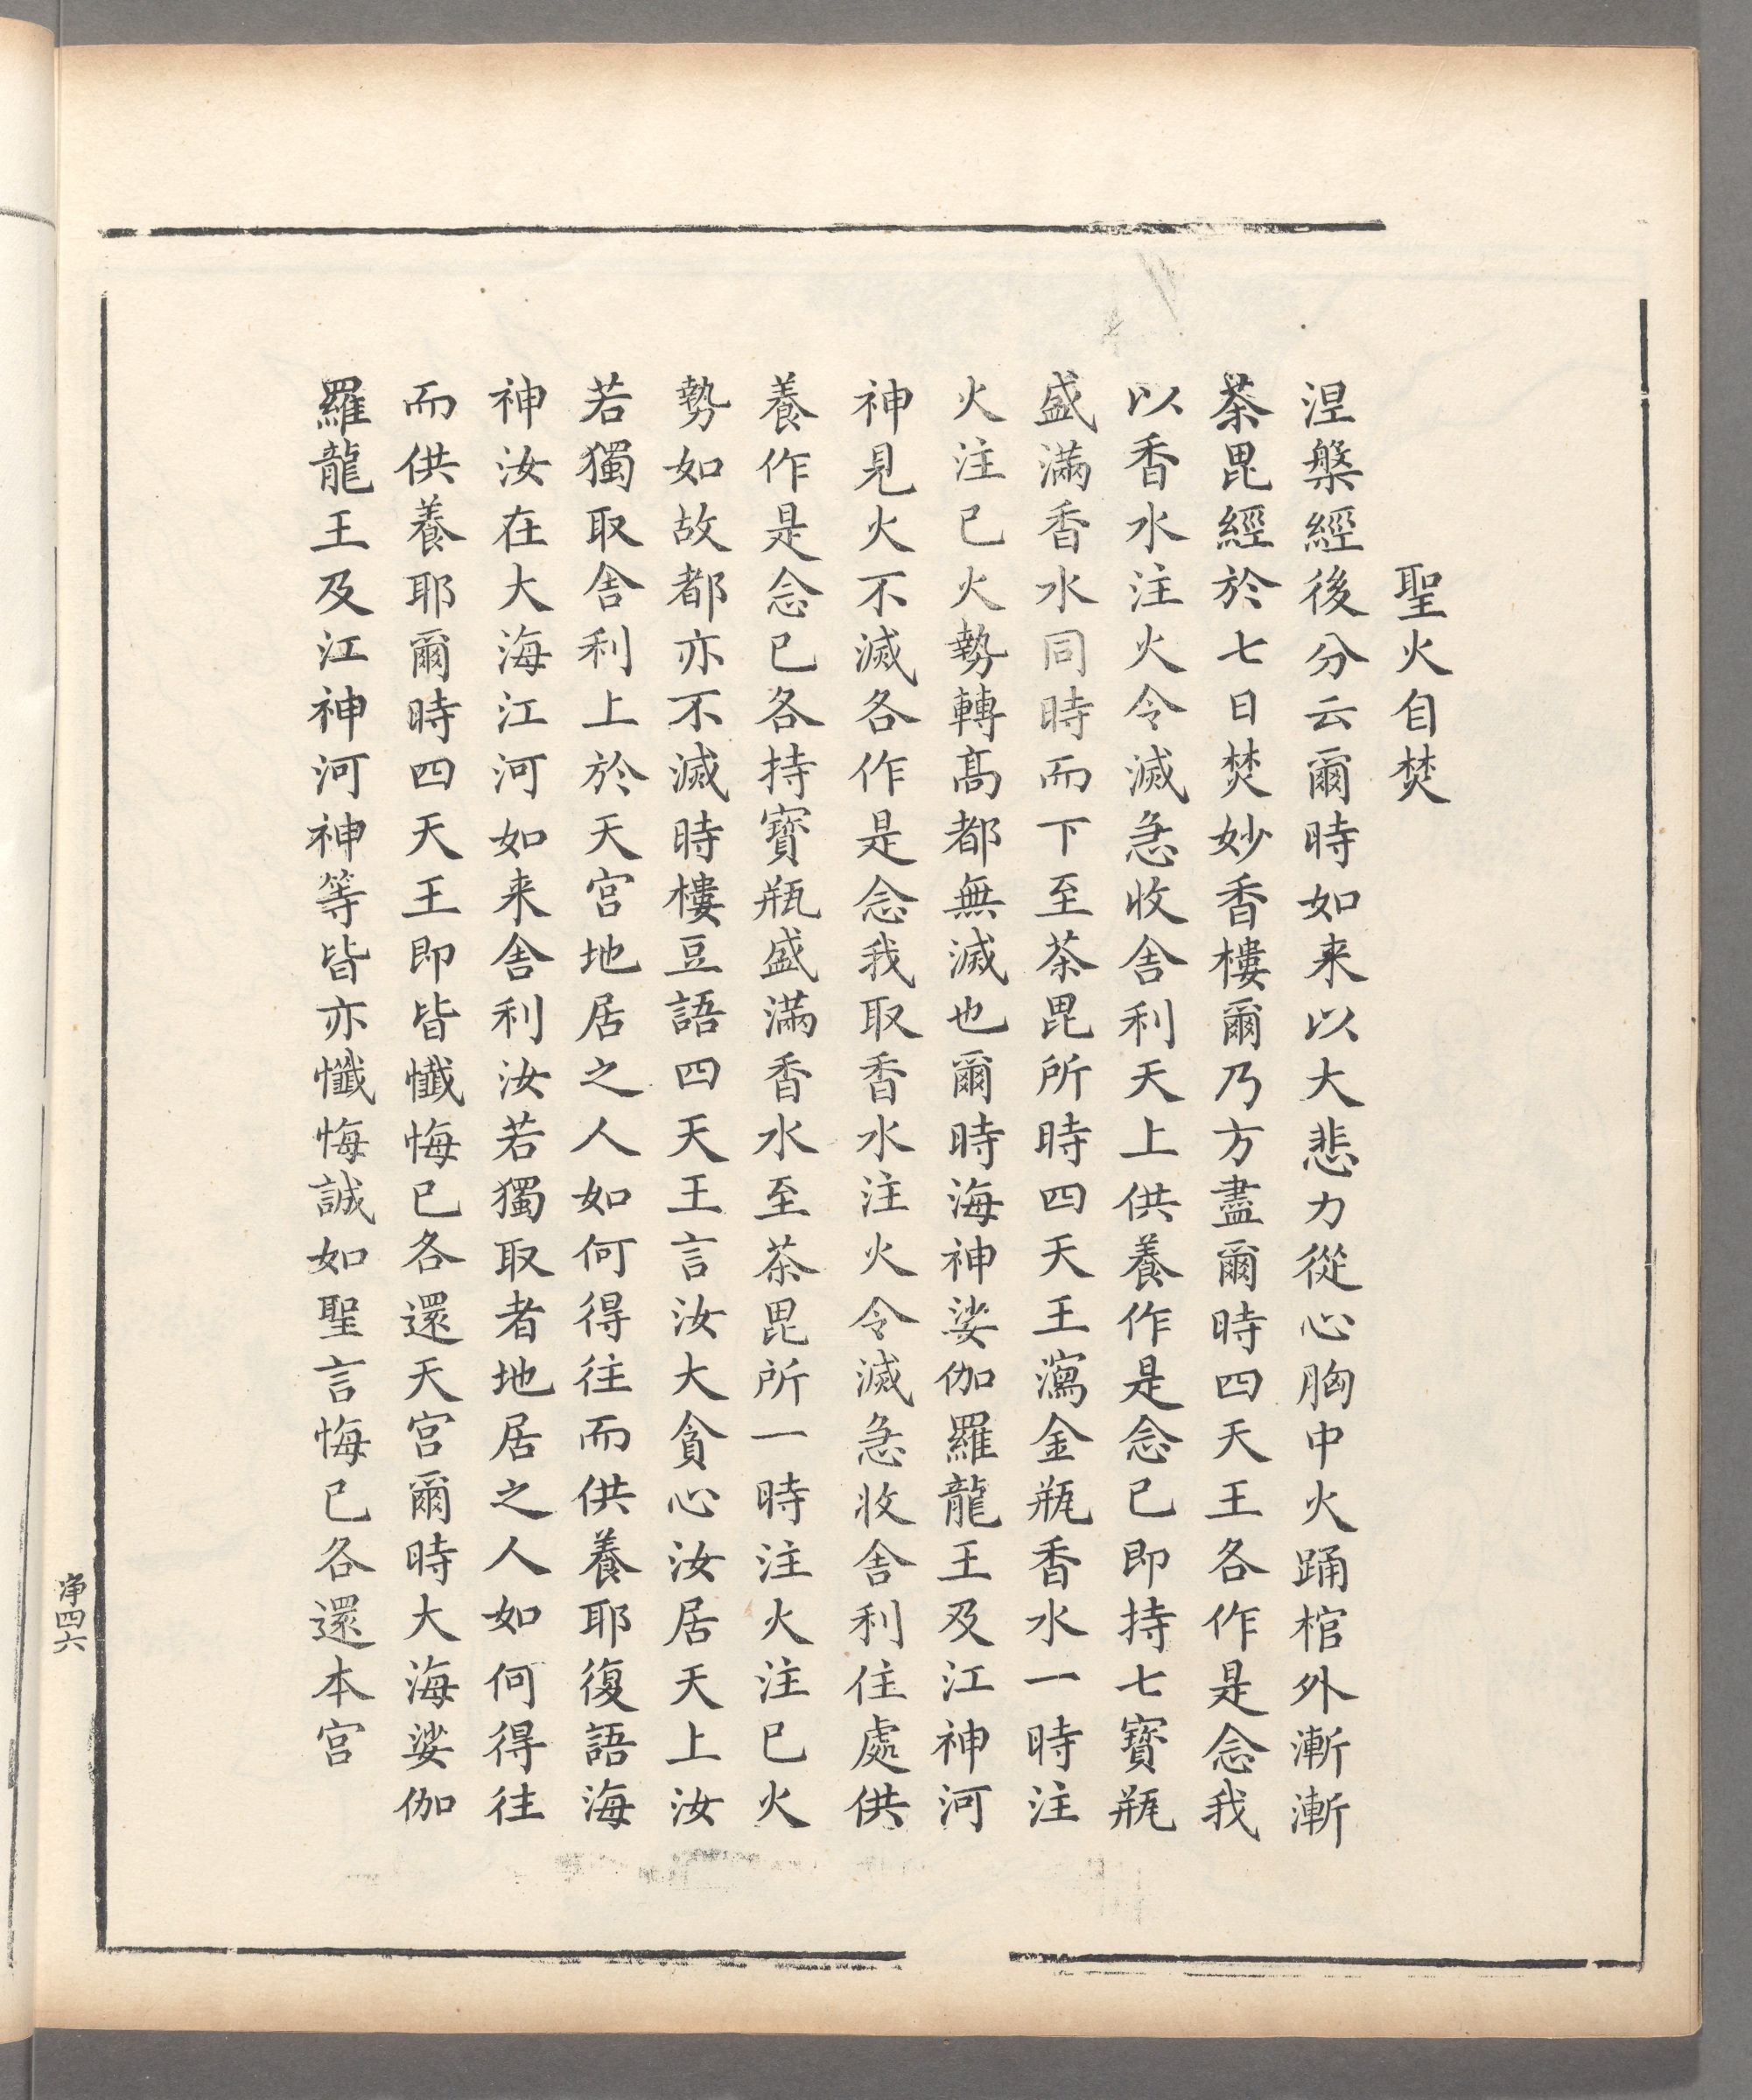 聖火自焚
涅槃經後分云爾時如来以大悲力從心胸中火踊棺外漸漸
荼毘經於七日焚妙香樓爾乃方盡爾時四天王各作是念我
以香水注火令滅急收舎利天上供養作是念已即持七寳瓶
盛滿香水同時而下至荼毘所時四天王瀉金瓶香水一時注
火注已火勢轉髙都無滅也爾時海神娑伽羅龍王及江神河
神見火不滅各作是念我取香水注火令滅急收舎利住處供
養作是念已各持寳瓶盛滿香水至荼毘所一時注火注已火
勢如故都亦不滅時樓豆語四天王言汝大貪心汝居天上汝
若獨取舎利上於天宮地居之人如何得往而供養耶復語海
神汝在大海江河如来舎利汝若獨取者地居之人如何得往
而供養耶爾時四天王即皆懺悔已各還天宮爾時大海娑伽
羅龍王及江神河神等皆亦懺悔誠如聖言悔已各還本宮
净四六